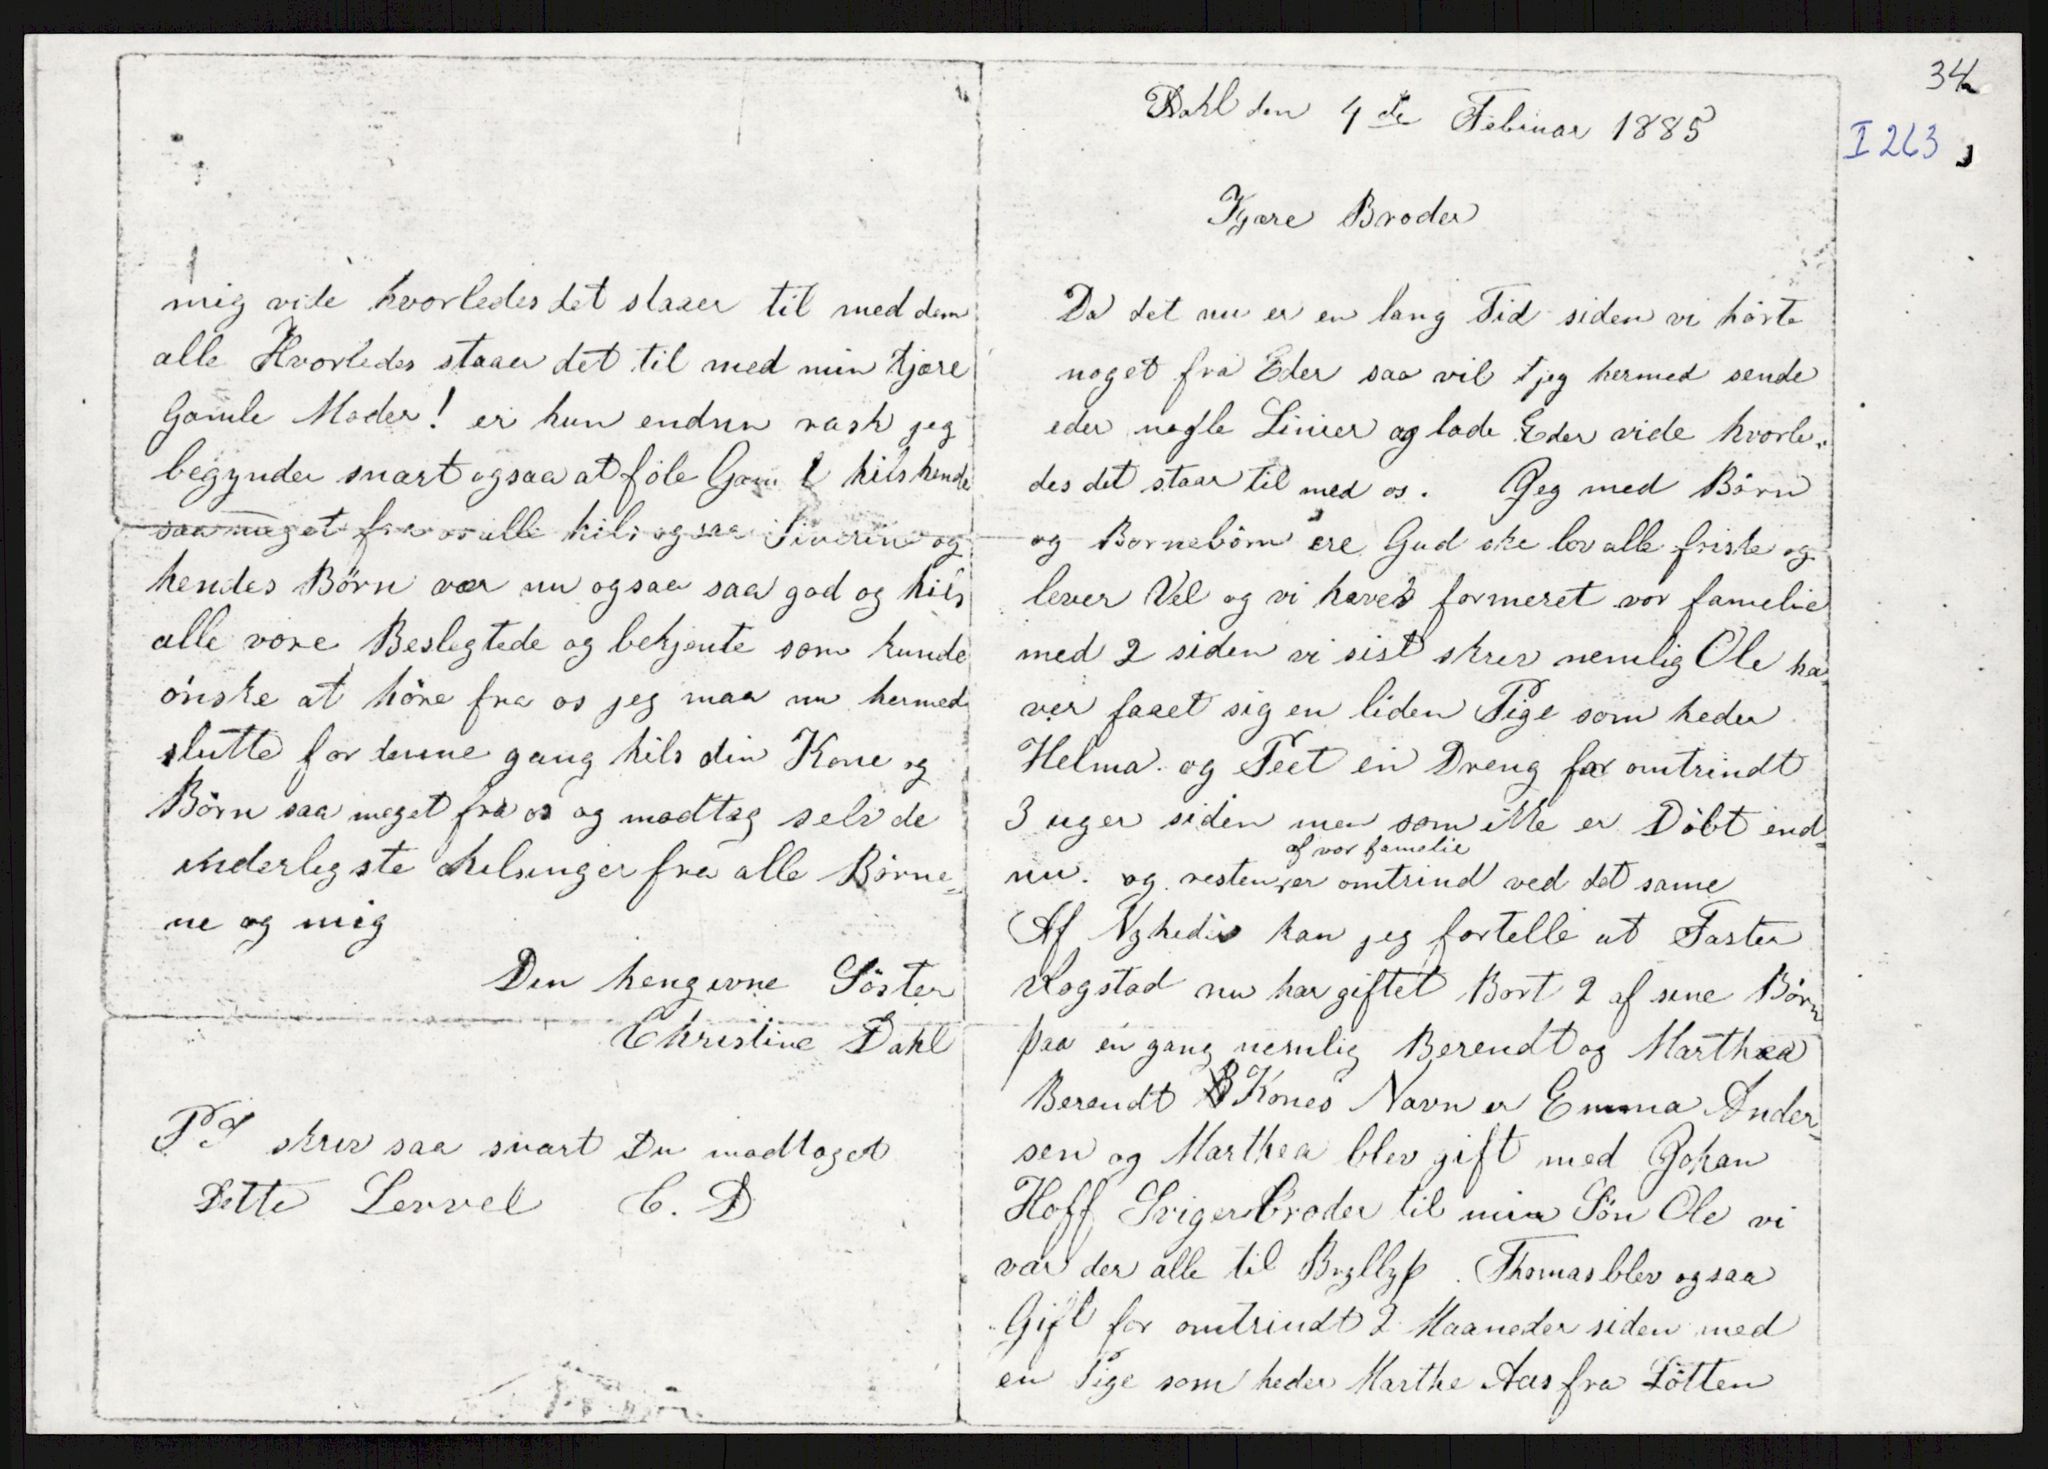 34
I 263
Dahl den 4de Februar 1885
Kjære Broder
Da det nu er en lang Tid siden vi hörte
noget fra Eder saa vil jeg hermed sende
eder nogle Linier og lade Eder vide hvorle-
des det staar til med os. Jeg med Börn
og Bornebörn ere Gud ske lov alle friske og
lever Vel og vi haver formeret vor famelie
med 2 siden vi sist skrev nemlig Ole ha-
ver faaet sig en liden Pige som heder
Helma. og Peet en Dreng for omtrindt
3 uger siden men som ikke er Döbt end-
af vor famelie
nu. og resten er omtrind ved det same
Af Nyheder kan jeg fortelle at Faster
Rogstad nu har giftet Bort 2 af sine Börn
paa en gang nemlig Berendt og Marthea
Berendt Kones Navn er Emma Ander-
sen og Marthea blev gift med Johan
Hoff Svigerbroder til min Sön Ole vi
var der alle til Bryllyp. Thomas blev ogsaa
Gift for omtrindt 2 Maaneder siden med
en Pige som heder Marthe Aas fra Lötten
mig vide hvorledes det staaer til med dem
alle Hvorledes staaer det til med min kjære
Gamle Moder! er hun endnu rask jeg
begynder snart ogsaa at föle Gam l hils hende
saa meget fra os alle hils ogsaa Siverine og
hendes Börn vær nu ogsaa saa god og hils
alle vore Beslegtede og bekjente som kunde
önske at höre fra os jeg maa nu hermed
slutte for denne gang hils din Kone og
Börn saa meget fra os og modtag selv de
inderligste hilsinger fra alle Börne-
ne og mig
Din hengivne Söster
Christine Dahl
PS skriv saa snart Du modtaget
Dette Levvel C. D